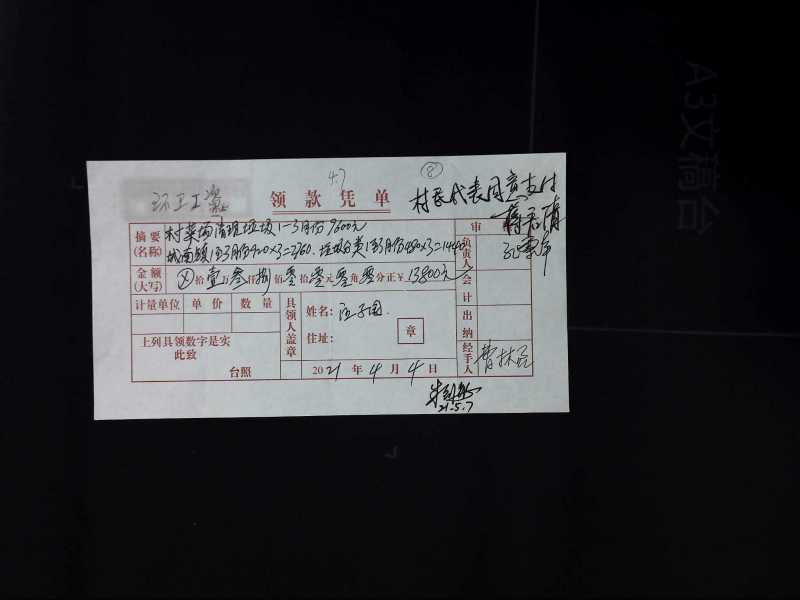 47
⑧
环卫工资
领款凭单
村民代表同意支付
审
摘要
(名称)
村菜场清理垃圾1—3月份 9600元
城南镇1至3月份920×3=2760.垃圾分类1至3月份480×3=1440
负责人
金额
(大写)
⊗拾壹万叁仟捌佰零拾零元零角零分正¥13800元
会计
计量单位 单价 数量
具领人盖章
姓名:
住址:
章
出纳
上列具领数字是实
此致
台照
2021年4月4日
经手人
21.5.7
A3文稿台